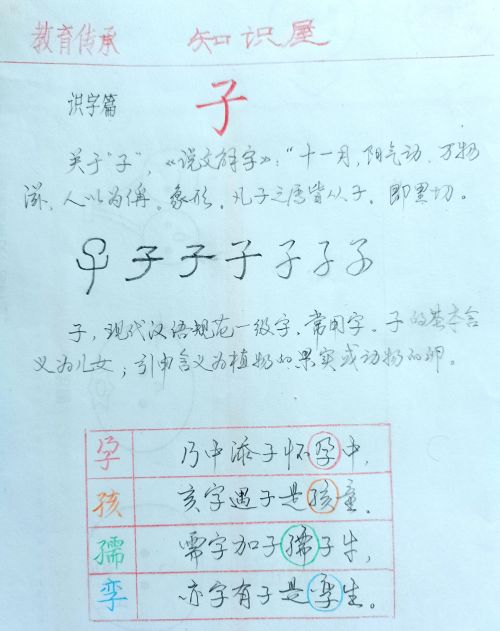 教育传承 知识屋
识字篇 子
关于"子",《说文解字》:"十一月,阳气动,万物
滋,人以为偁。象形。凡子之属皆从子。即里切。
子 子 子 子 子 子 子
子,现代汉语规范一级字,常用字。子的基本含
义为儿女;引申含义为植物如果实或动物的卵。
孕 乃中添子怀孕中,
孩 亥字遇子是孩童。
孺 需字加子孺子牛,
孪 亦字有子是孪生。